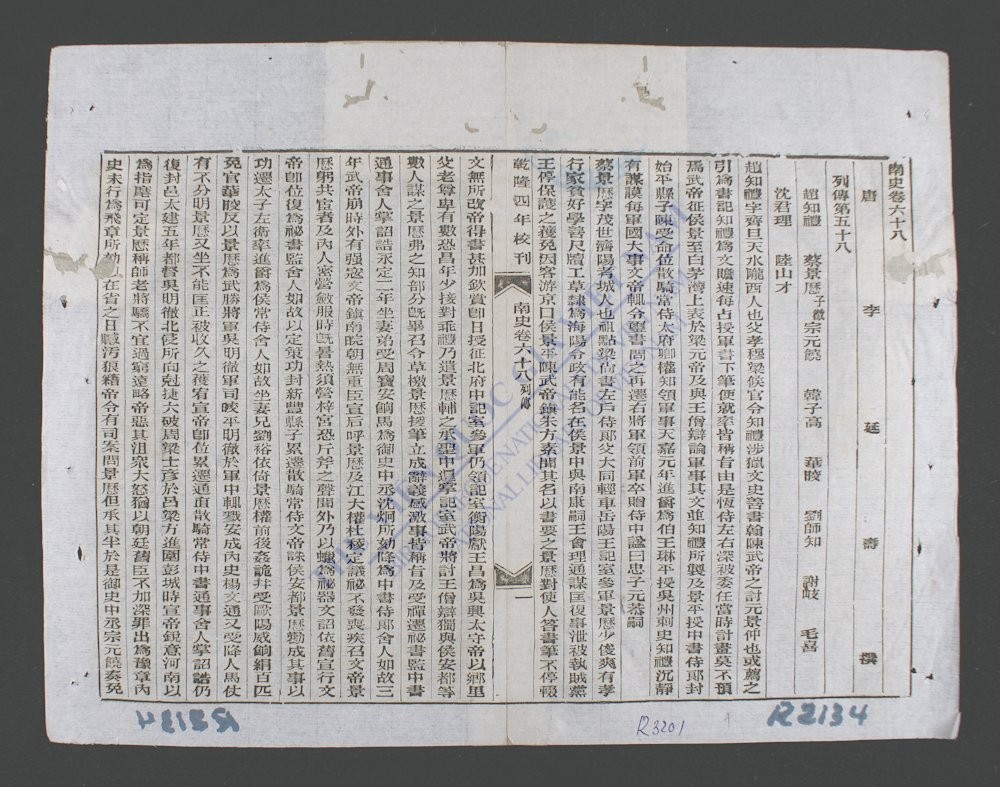 南史卷六十八
唐 李 延 壽 撰
列傳第五十八
趙知禮 蔡景歷子徵 宗元饒 韓子高 華皎 劉師知 謝岐 毛喜
沈君理 陸山才
趙知禮字齊旦天水隴西人也父孝穆梁候官令知禮涉獵文史善書翰陳武帝之討元景仲也或薦之
引爲書記知禮爲文贍速每占授軍書下筆便就率皆稱旨由是恆侍左右深被委任當時計畫莫不預
焉武帝征侯景至白茅灣上表於梁元帝及與王僧辯論軍事其文並知禮所製及景平授中書侍郎封
始平縣子陳受命位散騎常侍太府卿權知領軍事天嘉元年進爵爲伯王琳平授吳州刺史知禮沈靜
有謀謨每軍國大事文帝輒令璽書問之再遷右將軍領前軍卒贈侍中諡曰忠子元恭嗣
蔡景歷字茂世濟陽考城人也祖點梁尚書左戶侍郎父大同輕車岳陽王記室參軍景歷少俊爽有孝
行家貧好學善尺牘工草隸爲海陽令政有能名在侯景中與南康嗣王會理通謀匡復事泄被執賊黨
王偉保護之獲免因客游京口侯景平陳武帝鎮朱方素聞其名以書要之景歷對使人答書筆不停輟
乾隆四年校刊 南史卷六十八列傳 一
文無所改帝得書甚加欽賞卽日授征北府中記室參軍仍領記室衡陽獻王昌爲吳興太守帝以鄉里
父老尊卑有數恐昌年少接對乖禮乃遣景歷輔之承聖中還掌記室武帝將討王僧辯獨與侯安都等
數人謀之景歷弗之知部分旣畢召令草檄景歷援筆立成辭義感激事皆稱旨及受禪遷祕書監中書
通事舍人掌詔誥永定二年坐妻弟受周寶安餉馬爲御史中丞沈炯所劾降爲中書侍郎舍人如故三
年武帝崩時外有强寇文帝鎮南皖朝無重臣宣后呼景歷及江大權杜稜定議祕不發喪疾召文帝景
歷躬共宦者及內人密營斂服時旣暑熱須營梓宮恐斤斧之聲聞外乃以蠟爲祕器文詔依舊宣行文
帝卽位復爲祕書監舍人如故以定策功封新豐縣子累遷散騎常侍文帝誅侯安都景歷勸成其事以
功遷太子左衛率進爵爲侯常侍舍人如故坐妻兄劉裕依倚景歷權前後姦詭幷受歐陽威餉絹百匹
免官華皎反以景歷爲武勝將軍吳明徹軍司皎平明徹於軍中輒戮安成內史楊文通又受降人馬仗
有不分明景歷又坐不能匡正被收久之獲宥宣帝卽位累遷通直散騎常侍中書通事舍人掌詔誥仍
復封邑太建五年都督吳明徹北侵所向剋捷大破周梁士彥於呂梁方進圍彭城時宣帝銳意河南以
爲指麾可定景歷稱師老將驕不宜過窮遠略帝惡其沮衆大怒猶以朝廷舊臣不加深罪出爲豫章內
史未行爲飛章所劾以在省之日贓汚狼籍帝令有司案問景歷但承其半於是御史中丞宗元饒奏免
R2134
R3201